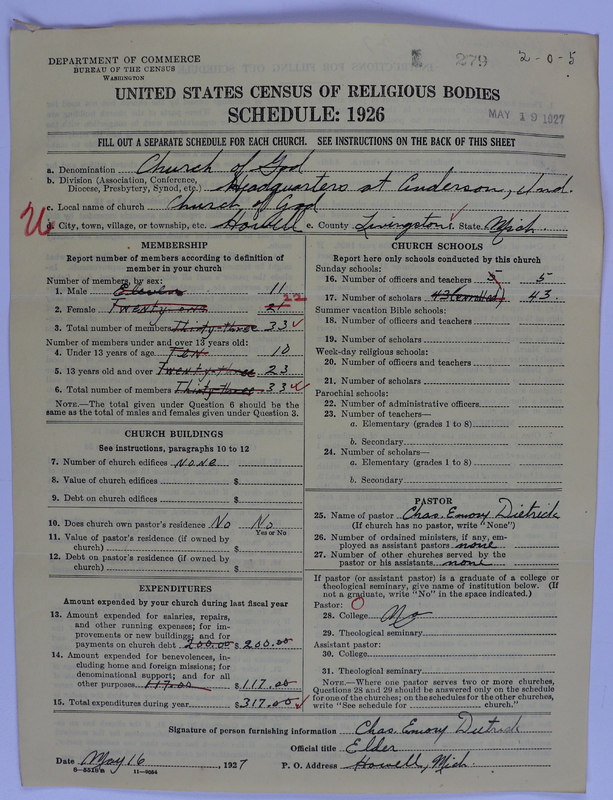 279 2-0-5
DEPARTMENT OF COMMERCE
BUREAU OF THE CENSUS
WASHINGTON
UNITED STATES CENSUS OF RELIGIOUS BODIES
SCHEDULE: 1926
MAY 19 1927
FILL OUT A SEPARATE SCHEDULE FOR EACH CHURCH. SEE INSTRUCTIONS ON THE BACK OF THIS SHEET
a. Denomination Church of God
b. Division (Association, Conference,
Diocese, Presbytery, Synod, etc.) Headquarters at Anderson, Ind.
c. Local name of church Church of God
d. City, town, village, or township, etc. Howell e. County Livingston f. State Mich.
MEMBERSHIP
Report number of members according to definition of
member in your church
Number of members, by sex:
1. Male Eleven 11
2. Female Twenty-one 21 22
3. Total number of members Thirty-three 33
Number of members under and over 13 years old:
4. Under 13 years of age Ten 10
5. 13 years old and over Twenty-three 23
6. Total number of members Thirty-three 33
NOTE.—The total given under Question 6 should be
same as the total of males and females given under Question 3.
CHURCH BUILDINGS
See instructions, paragraphs 10 to 12
7. Number of church edifices none
8. Value of church edifices $
9. Debt on church edifices $
10. Does church own pastor's residence No No
Yes or No
11. Value of pastor's residence (if owned by
church) $
12. Debt on pastor's residence (if owned by
church) $
EXPENDITURES
Amount expended by your church during last fiscal year
13. Amount expended for salaries, repairs,
and other running expenses; for im-
provements or new buildings; and for
payments on church debt 200.00 $200.00
14. Amount expended for benevolences, in-
cluding home and foreign missions; for
denominational support; and for all
other purposes 117.00 $117.00
15. Total expenditures during year $317.00
CHURCH SCHOOLS
Report here only schools conducted by this church
Sunday schools:
16. Number of officers and teachers 5 5
17. Number of scholars 43 (enrolled) 43
Summer vacation Bible schools:
18. Number of officers and teachers
19. Number of scholars
Week-day religious schools:
20. Number of officers and teachers
21. Number of scholars
Parochial schools:
22. Number of administrative officers
23. Number of teachers—
a. Elementary (grades 1 to 8)
b. Secondary
24. Number of scholars—
a. Elementary (grades 1 to 8)
b. Secondary
PASTOR
25. Name of pastor Chas. Emory Dietrich
(If church has no pastor, write "None")
26. Number of ordained ministers, if any, em-
ployed as assistant pastors none
27. Number of other churches served by the
pastor or his assistants none
If pastor (or assistant pastor) is a graduate of a college or
theological seminary, give name of institution below. (If
not a graduate, write "No" in the space indicated.)
Pastor:
28. College No
29. Theological seminary
Assistant pastor:
30. College
31. Theological seminary
NOTE.—Where one pastor serves two or more churches,
Questions 28 and 29 should be answered only on the schedule
for one of the churches; on the schedules for the other churches,
write "See schedule for church."
Signature of person furnishing information Chas. Emory Dietrich
Official title Elder
Date May 16, 1927 P. O. Address Howell, Mich.
8-5516a 11-9084